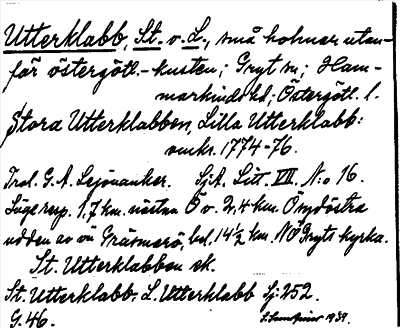 Utterklabb, St. o. L., små holmar utan-
för östergötl.-kusten; Gryt sn; Ham-
markinds hd; Östergötl. l.
Stora Utterklabben, Lilla Utterklabb:
omkr. 1774-76.
Trol. G. A. Lejonanker. SjA. Litt. VII, N:o 16.
Läge resp. 1,7 km. nästan Ö o. 2,4 km. Ö
udden av ön Gräsmarö, bel. 14½ km NÖ Gryts kyrka.
St. Utterklabben sk.
St. Utterklabb. L. Utterklabb Sj. 252.
G. 46. 1939.